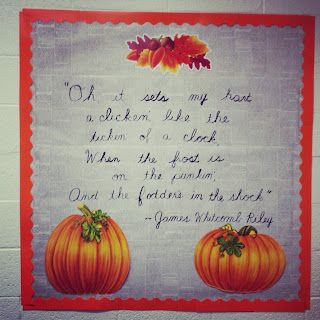 "Oh it sets my hart
a clickin' like the
tickin' of a clock,
When the frost is
on the punkin',
And the fodder's in the shock"
~James Whitcomb Riley